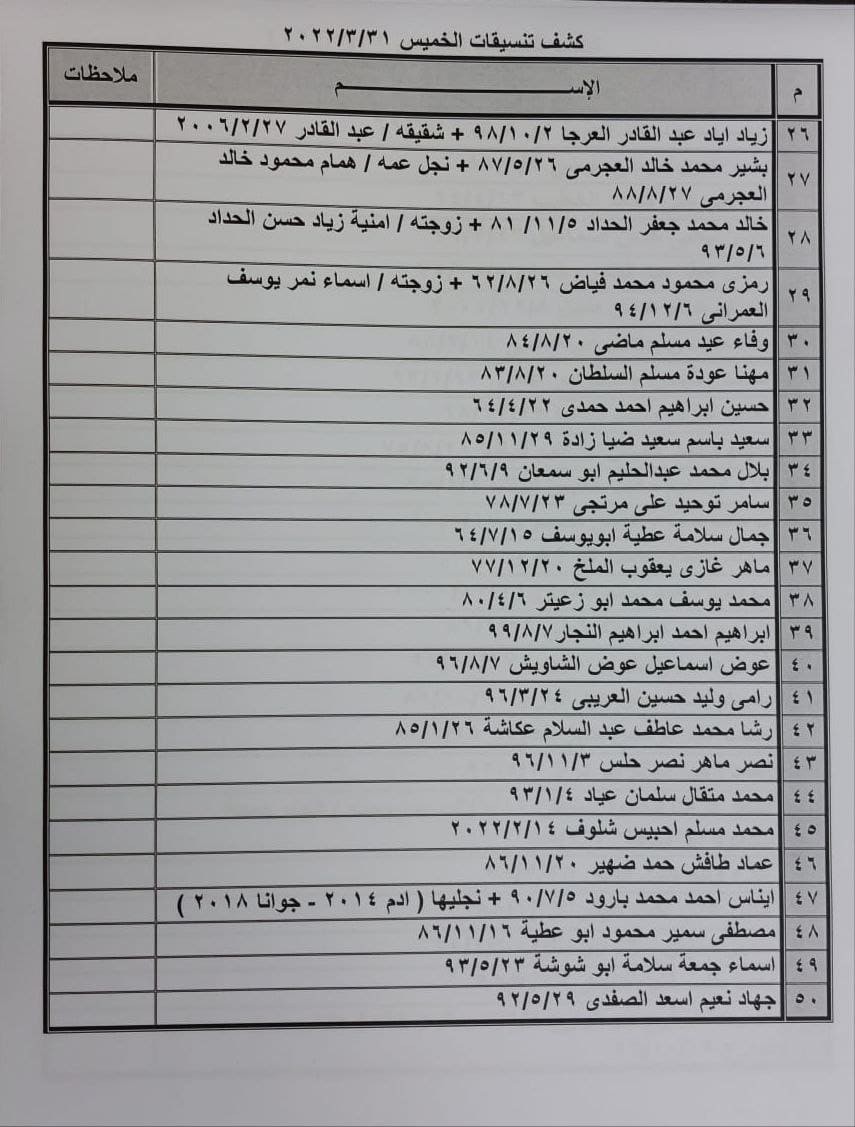 كشف تنسيقات الخميس ٢٠٢٢/٣/٣١
م الإســـــــــــــــــــم ملاحظات
٢٦ زياد اياد عبد القادر العرجا ٩٨/١٠/٢ + شقيقه / عبد القادر ٢٠٠٦/٢/٢٧
٢٧ بشير محمد خالد العجرمى ٨٧/٥/٢٦ + نجل عمه / همام محمود خالد
العجرمى ٨٨/٨/٢٧
٢٨ خالد محمد جعفر الحداد ٨١/١١/٥ + زوجته / امنية زياد حسن الحداد
٩٣/٥/٦
٢٩ رمزى محمود محمد فياض ٦٢/٨/٢٦ + زوجته / اسماء نمر يوسف
العمرانى ٩٤/١٢/٦
٣٠ وفاء عيد مسلم ماضى ٨٤/٨/٢٠
٣١ مهنا عودة مسلم السلطان ٨٣/٨/٢٠
٣٢ حسين ابراهيم احمد حمدى ٦٤/٤/٢٢
٣٣ سعيد باسم سعيد ضيا زادة ٨٥/١١/٢٩
٣٤ بلال محمد عبدالحليم ابو سمعان ٩٢/٦/٩
٣٥ سامر توحيد على مرتجى ٧٨/٧/٢٣
٣٦ جمال سلامة عطية ابويوسف ٦٤/٧/١٥
٣٧ ماهر غازى يعقوب الملخ ٧٧/١٢/٢٠
٣٨ محمد يوسف محمد ابو زعيتر ٨٠/٤/٦
٣٩ ابراهيم احمد ابراهيم النجار٩٩/٨/٧
٤٠ عوض اسماعيل عوض الشاويش ٩٦/٨/٧
٤١ رامى وليد حسين العريبى ٩٦/٣/٢٤
٤٢ رشا محمد عاطف عبد السلام عكاشة ٨٥/١/٢٦
٤٣ نصر ماهر نصر حلس ٩٦/١١/٣
٤٤ محمد متقال سلمان عياد ٩٣/١/٤
٤٥ محمد مسلم احبيس شلوف ٢٠٢٢/٢/١٤
٤٦ عماد طافش حمد ضهير ٨٦/١١/٢٠
٤٧ ايناس احمد محمد بارود ٩٠/٧/٥ + نجليها ( ادم ٢٠١٤ - جوانا ٢٠١٨ )
٤٨ مصطفى سمير محمود ابو عطية ٨٦/١١/١٦
٤٩ اسماء جمعة سلامة ابو شوشة ٩٣/٥/٢٣
٥٠ جهاد نعيم اسعد الصفدى ٩٢/٥/٢٩